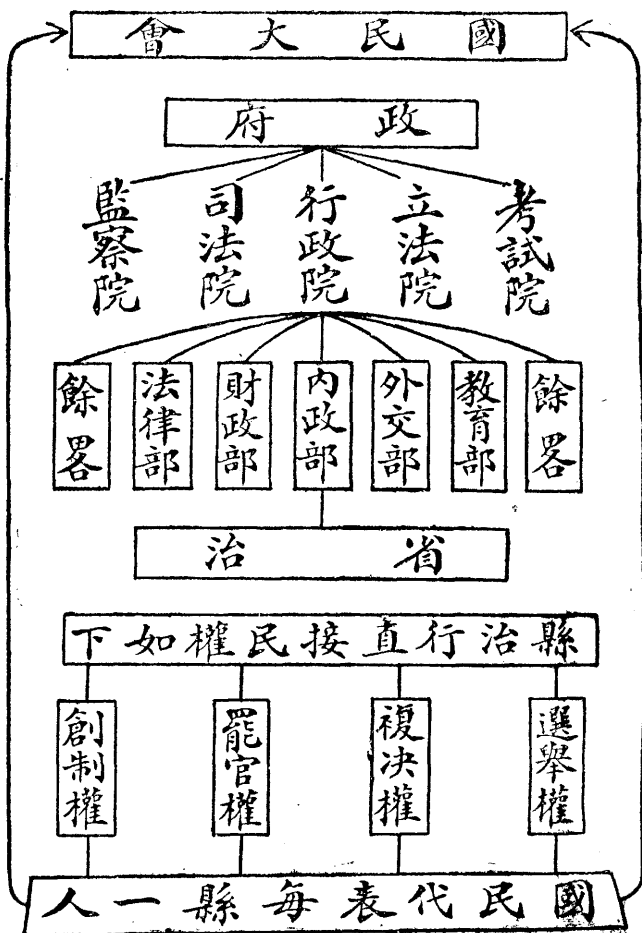 國民大會
政府
考試院
立法院
行政院
司法院
監察院
餘畧
教育部
外交部
內政部
財政部
法律部
餘畧
省治
縣治行直接民權如下
選舉權
複决權
罷官權
創制權
國民代表每縣一人